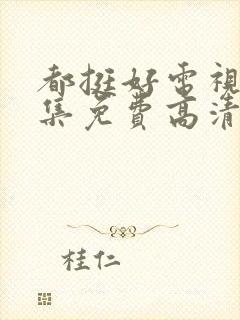 都挺好电視
集免費高清
桂仁